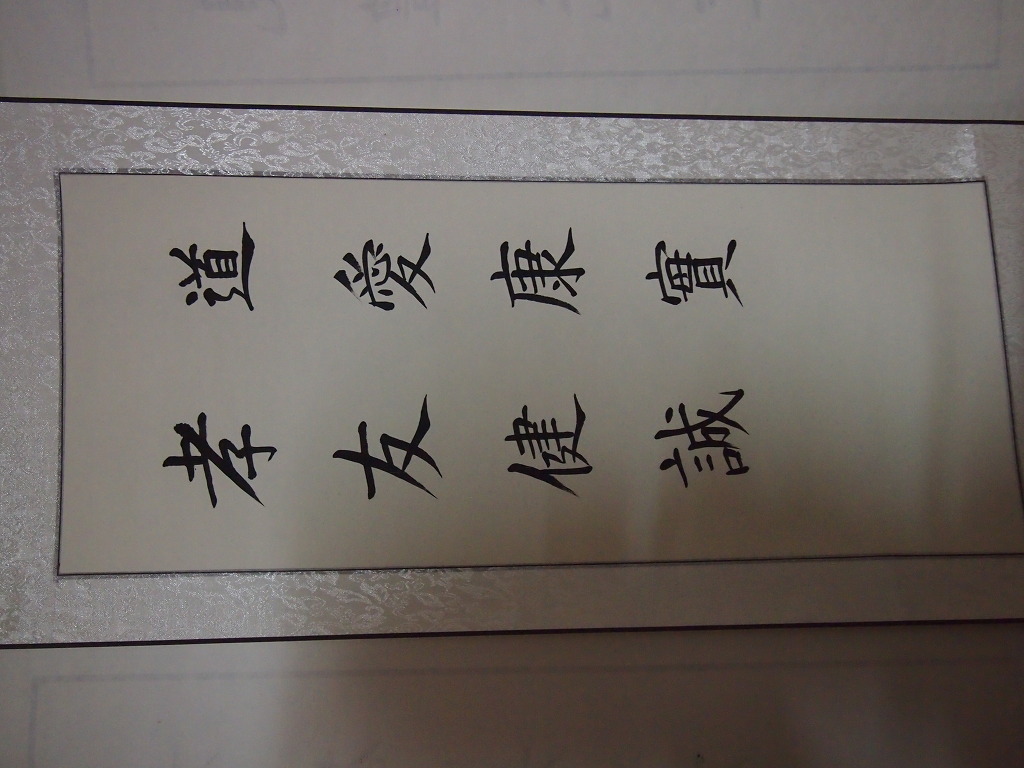 孝道
友愛
健康
誠實